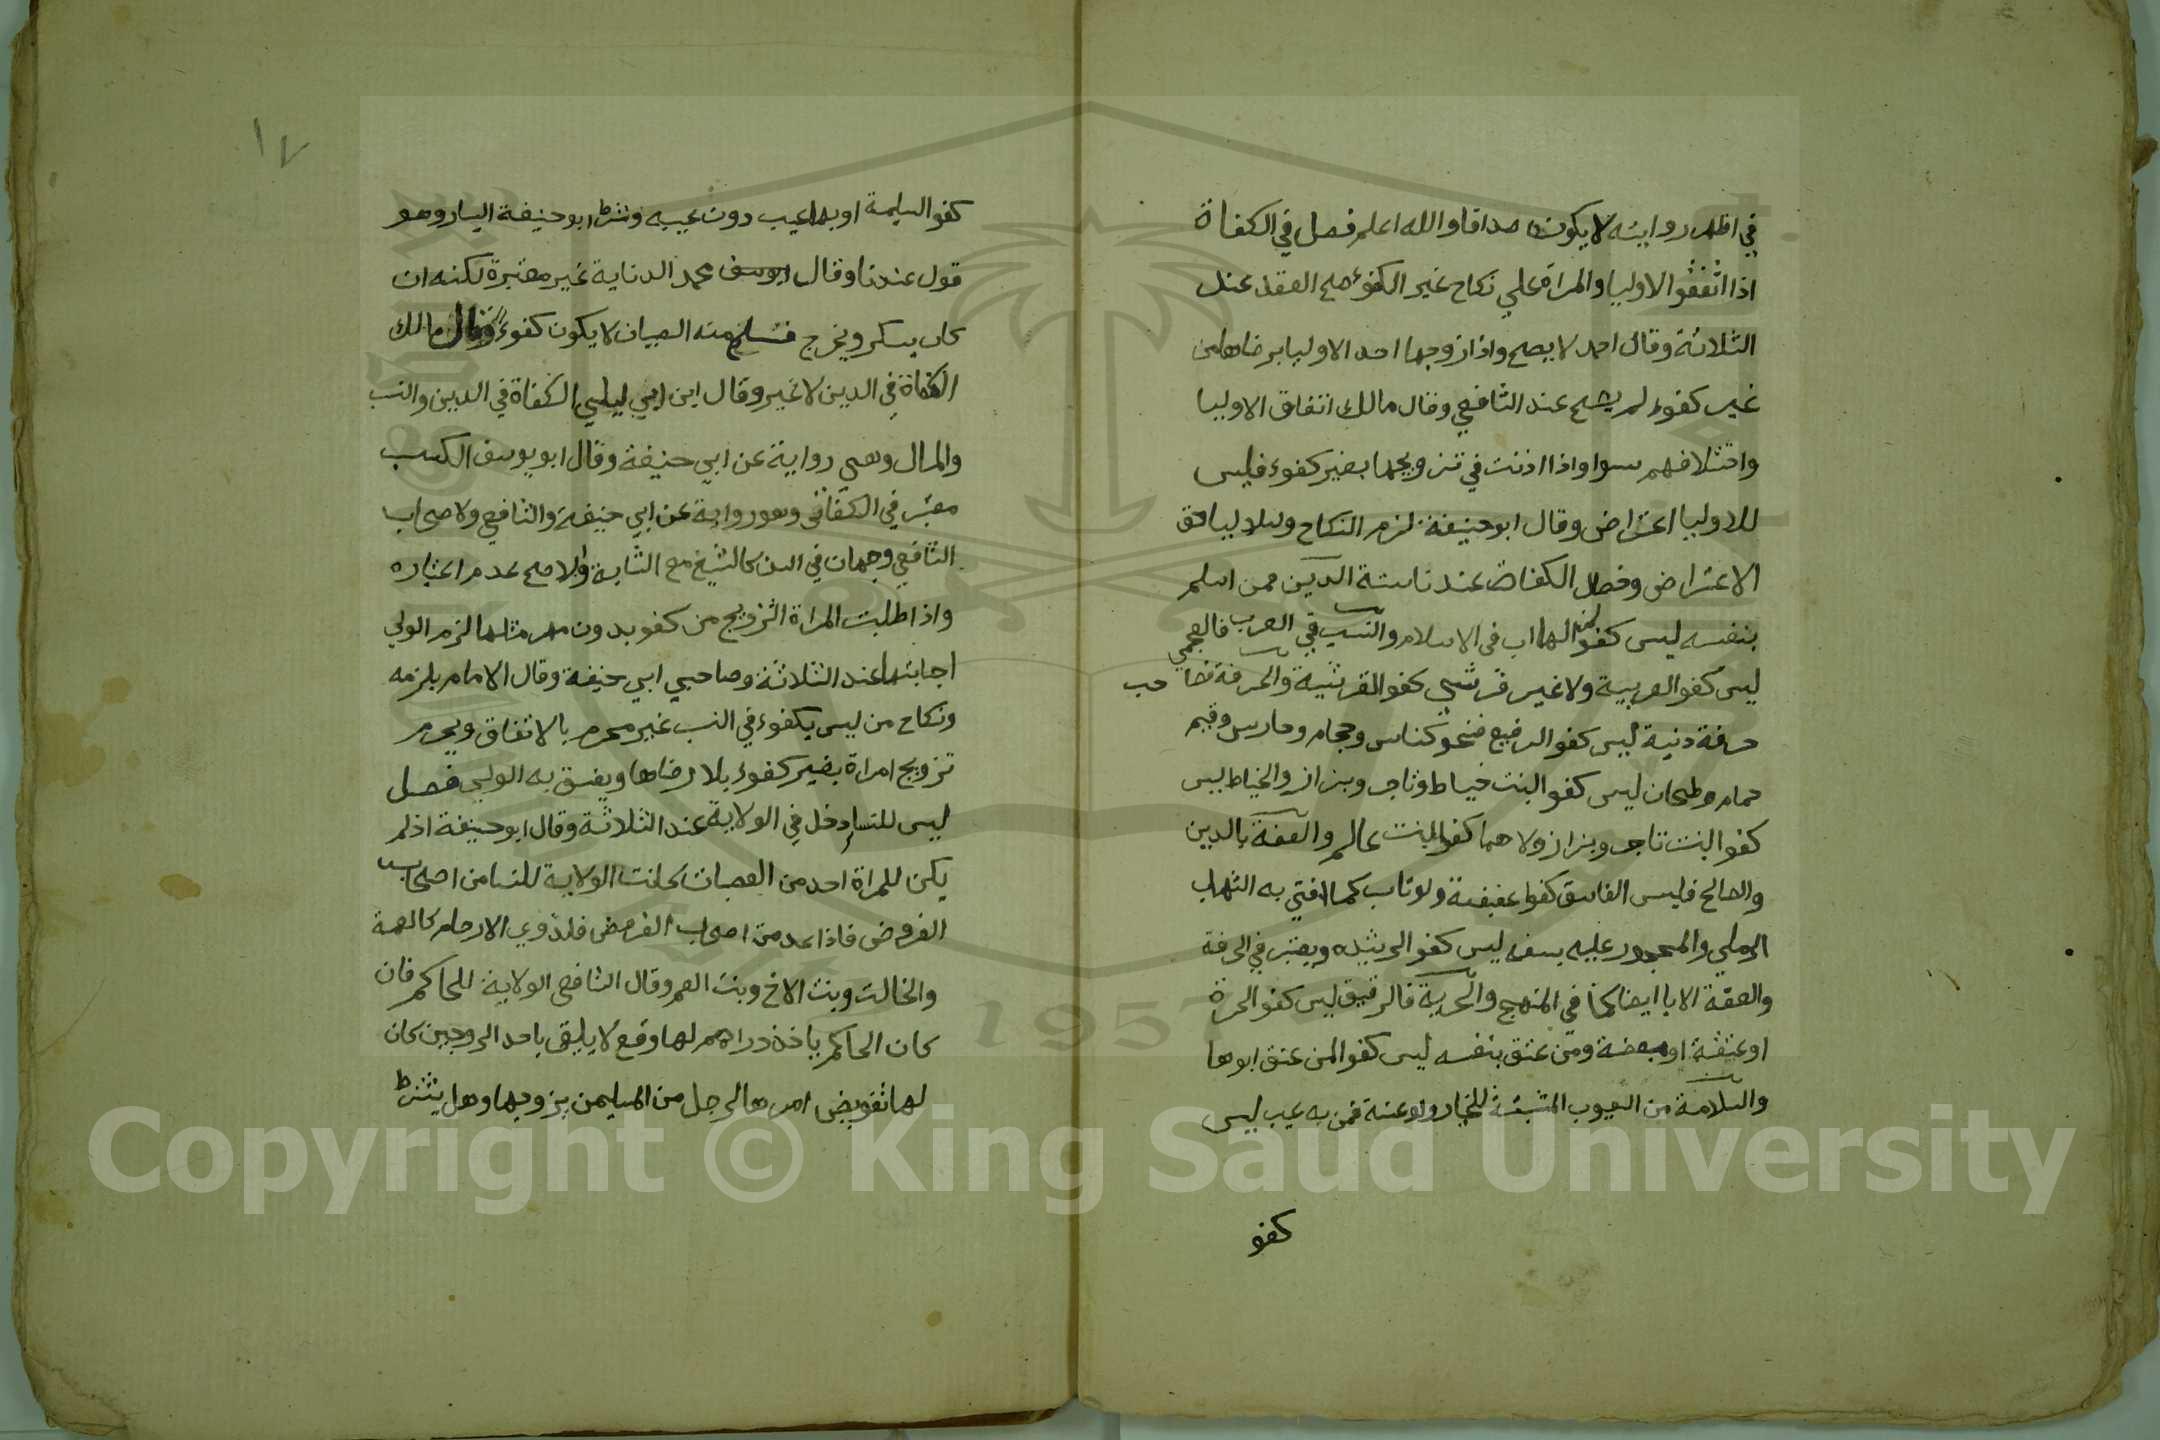 في اظهر روايته لا يكون صداقا والله اعلم فصل في الكفاة
اذا اتفقوا الاوليا والمراة علي نكاح غير الكفوء صح العقد عند
الثلاثة وقال احمد لا يصح واذا زوجها احد الاوليا برضاها من
غير كفوء لم يصح عند الشافعي وقال مالك اتفاق الاوليا
واختلافهم سوا واذا اذنت في تزويجها بغير كفوء فليس
للاوليا اعتراض وقال ابو حنيفة لزم النكاح وللاوليا حق
الاعتراض وخصال الكفاة عندنا ستة الدين فمن اسلم
بنفسه ليس كفو لمن لها اب في الاسلام والنسب في العرب فالعجمي
ليس كفو العربية ولا غير قرشي كفو القرشية والحرفة فصاحب
حرفة دنية ليس كفو الرفيع فنحو كناس وحجام وحارس وقيم
حمام وطحان ليس كفو البنت خياط وتاجر وبزاز والخياط ليس
كفو البنت تاجر وبزاز ولا هما كفو البنت عالم والعفة بالدين
والصالح فليس الفاسق كفوا عفيفة ولو تاب كما افتي به الشهاب
الرملي والمحجور عليه بسفه ليس كفو الرشيده ويعتبر في الحرفة
والعفة الابا ايضا كما في المنهج والحرية فالرقيق ليس كفو الحرة
او عتقة او مبعضة ومن عتق بنفسه ليس كفو المن عتق ابوها
والسلامة من العيوب المثبتة للخيار ولو عنة فمن به عيب ليس
كفو
١٧
كفو السليمة او بها عيب دون عيبه وشرط ابو حنيفة اليسار وهو
قول عندنا وقال ابو يوسف محمد الدناية غير معتبرة لكنه ان
كان يسكر ويخرج فتسلخ منه الصبيان لا يكون كفوءً وقال مالك
الكفاة في الدين لا غير وقال ابن ابي ليلي الكفاة في الدين والنسب
والمال وهي رواية عن ابي حنيفة وقال ابو يوسف الكسب
معتبر في الكفاة وهو رواية عن ابي حنيفة والشافعي ولاصحاب
الشافعي وجهان في السن كالشيخ مع الشابة والاصح عدم اعتباره
واذا طلبت المراة التزويج من كفو بدون مهر مثلها لزم الولي
اجابتها عند الثلاثة وصاحبي ابي حنيفة وقال الامام يلزمه
ونكاح من ليس يكفوء في النسب غير محرم بالاتفاق ويحرم
تزويج امراة بغير كفوء بلا رضاها ويفسق به الولي فصل
ليس للنسا دخل في الولاية عند الثلاثة وقال ابو حنيفة اذا لم
يكن للمراة احد من العصبات كانت الولاية للنسا من اصحاب
الفروض فاذا عدمن اصحاب الفروض فلذوي الارحام كالعمة
والخالت وبنت الاخ وبنت العم وقال الشافعي الولاية للحاكم فان
كان الحاكم ياخذ دراهم لها وقع لا يليق باحد الزوجين كان
لها تفويض امرها لرجل من المسلمين يزوجها وهل يشترط
Copyright © King Saud University
1957